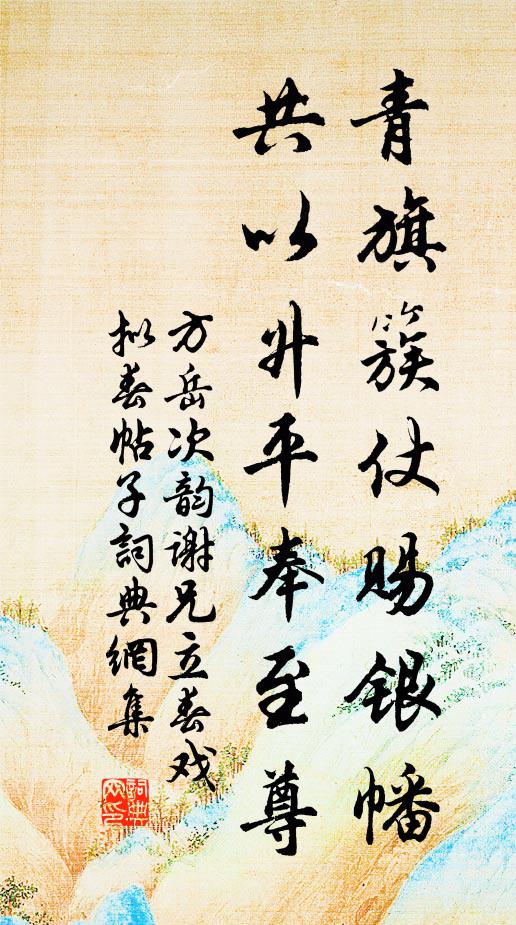 青旗簇仗賜銀幡
共以升平奉至尊
方岳次韵謝兄立春戏
拟春帖子詞典網集
詞典网印